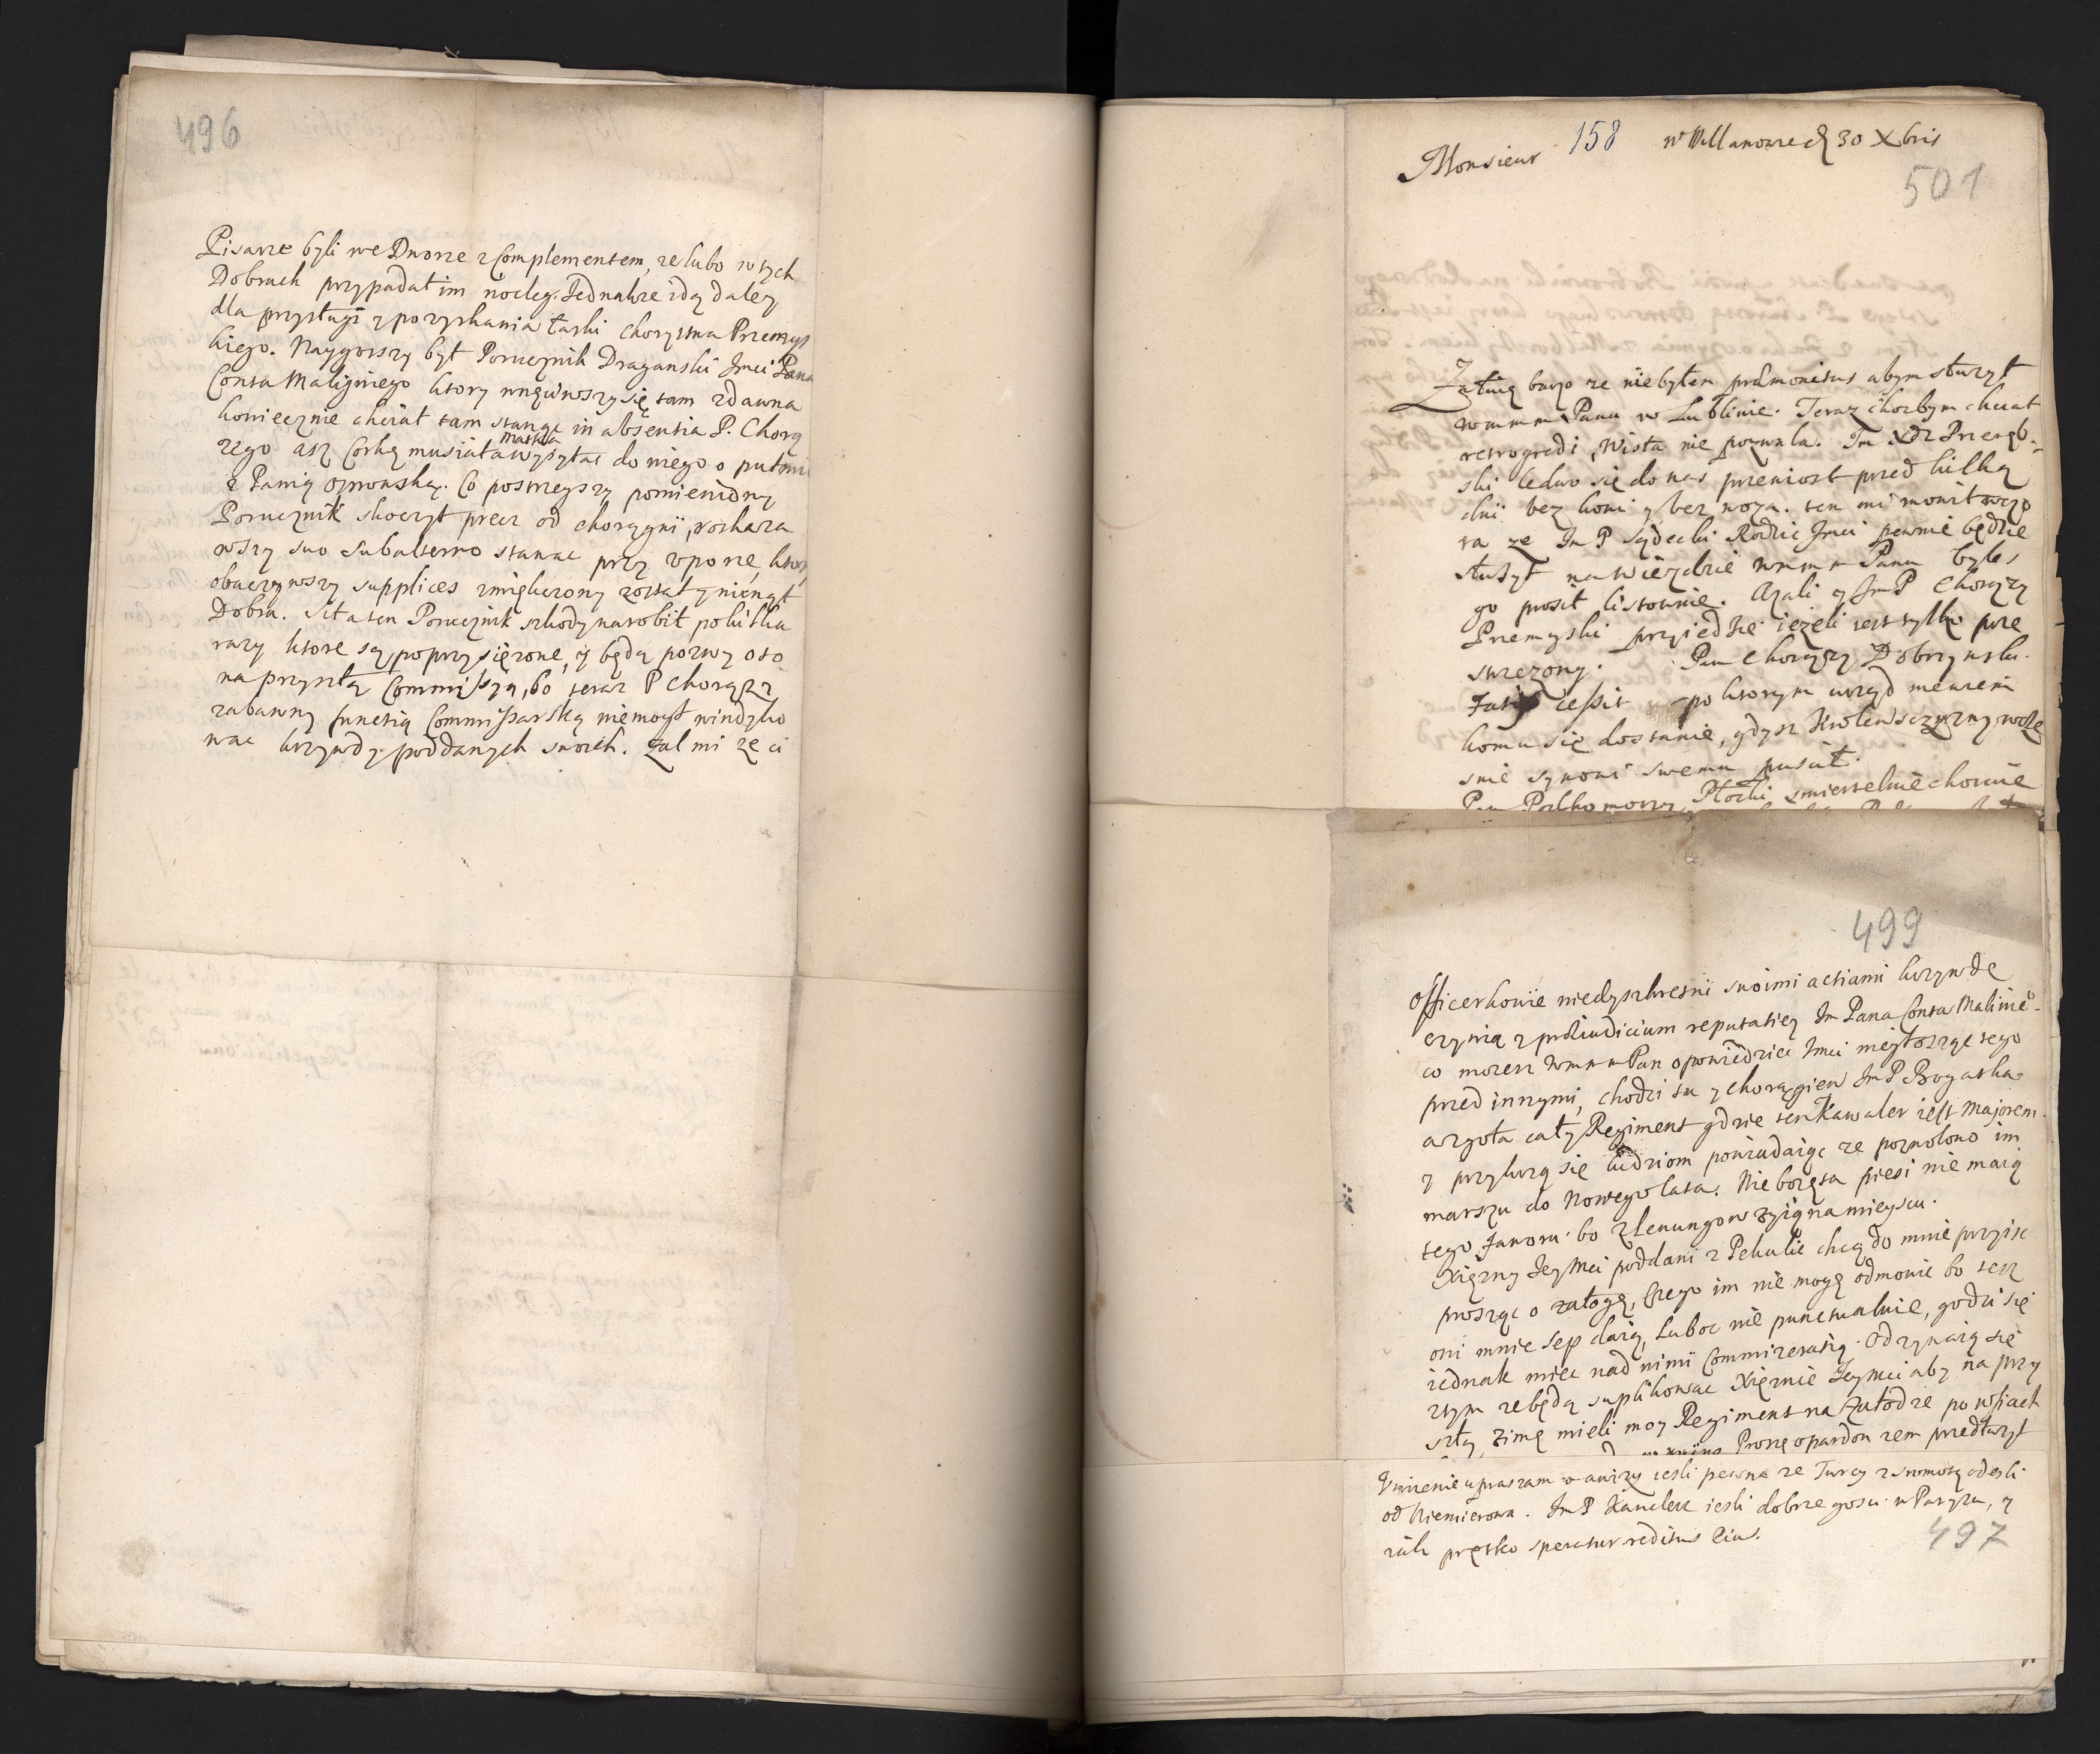 496
Pisarze byli we Dworze z Complementem, ze lubo w tych
Dobrach przypadał im nocleg. Jednakze idą daley
dla przysługi y pozyskania łaski Chorąstwa Przemys
kiego. Naygorszy był Porucznik Draganski Jmci Pana
Conta Maligniego ktory wnęciwszy się tam zdawna
koniecznie chciał tam stanąc in absentia P. Chorą
zego asz Corkę musiała Matka wysyłac do niego o putmi
z Panią Ozrowską. Co postrzegszy pomieniony
Porucznik skoczył precz od chorągwi, roskaza
wszy suo subalterno stawac przy uporze, ktory
obaczywszy supplices zmiękczony został y minął
Dobra. Siła ten Porucznik szkody narobił po kilka
razy ktore są poprzysięzone, y będą pozwy o to
na przyszłą Commissyą, bo teraz P Chorązy
zabawny functią Commissarską niemogł windyko
wac krzywdy poddanych swoich. zal mi ze ci
Monsieur 158 w Willanowie d 30 Xbris
501
Załuię barzo ze niebyłem præmonitus abym słuzył
wmmm Panu w Lublinie. Teraz chocbym chciał
retrogredi, Wisła nie pozwala. Jm Xdz Przeręb-
ski ledwo się do nas przeniosł przed kilką
dni bez koni y bez woza. ten mi mowił wczo
ra ze Jm P Sędecki Rodzic Jmci pewnie będzie
słuzył na wiezdzie wmmm Panu byles
go prosił listownie. Azali y Jm P Chorązy
Przemyski przyiedzie iezeli iest tylko prze
strezony. Pan Chorązy Dobrzynski
Jatis cessit po ktorym urząd niewiem
komu się dostanie, gdysz Krolewsczyzny wcze
snie synowi swemu puscił.
Pan Podkomorzy Płocki smiertelnie choruie
499
Officerkowie niedyskretni swoimi actiami krzywdę
czynią z præiudicium reputatiey Jm Pana Conta Malinie-
co mozesz wmmm Pan opowiedziec Jmci nieyłoszyc tego
przed innymi, chodzi tu y chorągiew Jm P Bogatka
a zgoła cały Regiment gdzie ten Kawaler iest Majorem.
y przykrzą się ludziom powiadaiąc ze pozwolono im
marszu do Nowego lata. Nie bozęta piesi nie maią
tego faworu bo z lenungow zyią na mieyscu.
Xięzny Jey Mci poddani z Pekulic chcą do mnie przyisc
prosząc o załogę, czego im nie mogę odmowic bo tesz
oni mnie sep daią, luboc nie punctualnie, godzi się
iednak miec nad nimi Commizeratią. Odzywaią się
ztym ze będą suplikowac Xięznie Jeymci aby na przy
szłą zimę mieli moy Regiment na załodze po wsiach
Proszę o pardon zem przedłuzył
Unizenie upraszam o awizy iesli pewna ze Turcy z sromotą odeszli
od Niemierowa. Jm P Kanclerz iesli dobrze gosci w Paryzu, y
iak prętko speratur reditus eius.
497